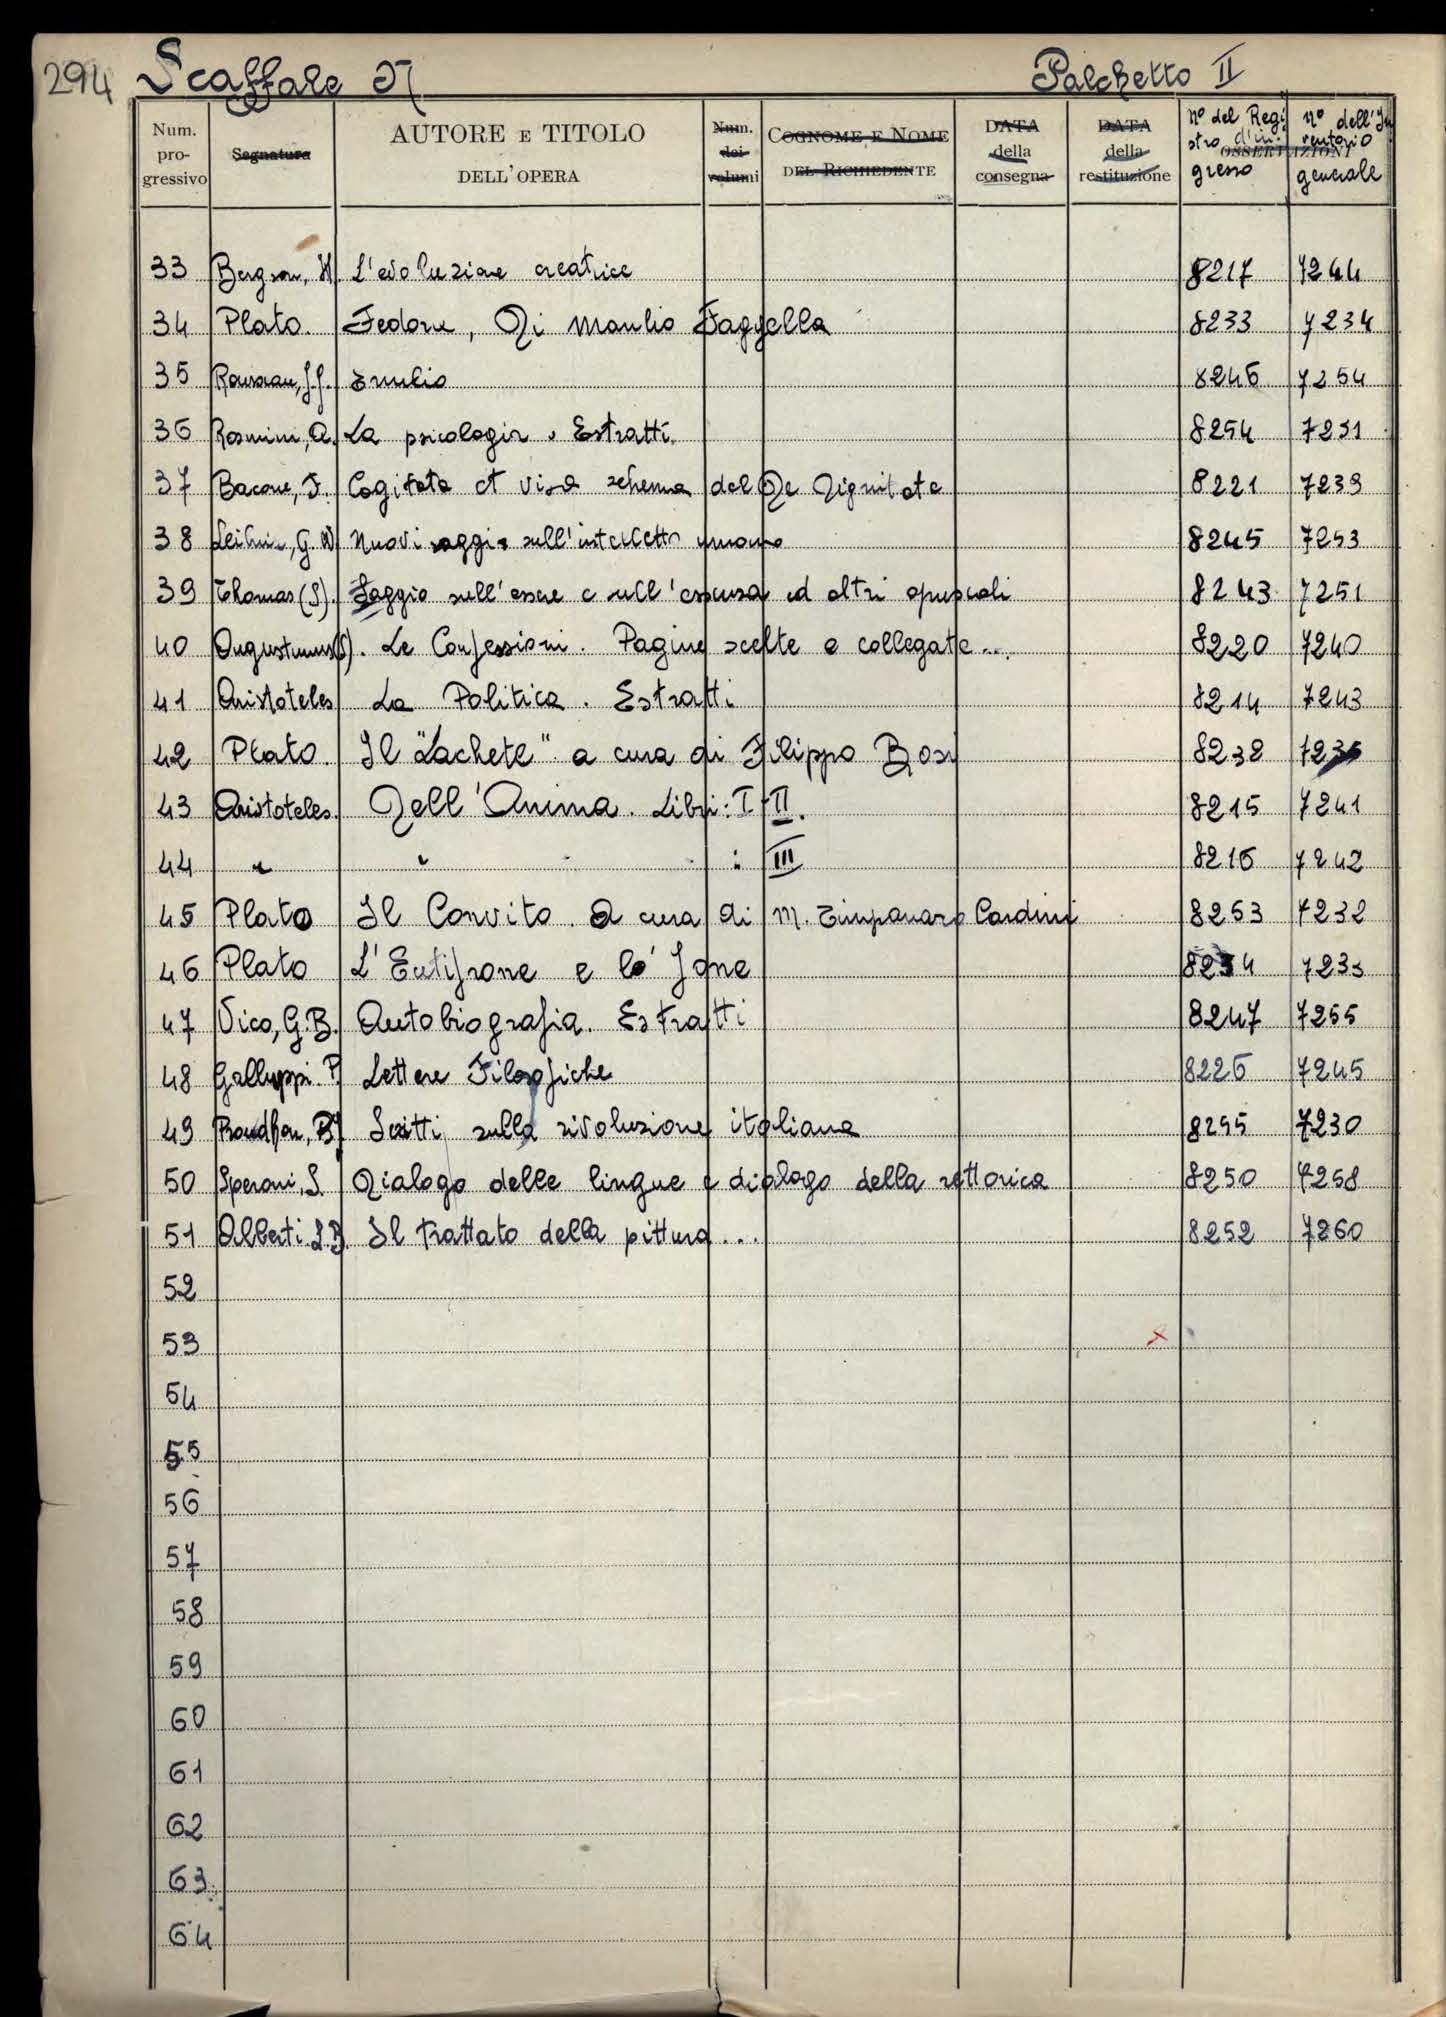 294 Scaffale N Palchetto II
Num. progressivo Segnatura AUTORE E TITOLO DELL'OPERA Num. dei volumi COGNOME E NOME DEL RICHIEDENTE DATA della consegna DATA della restituzione OSSERVAZIONI Nº del Registro d'ingresso Nº dell'Inventorio generale
33 Bergson, H. L'evoluzione creatrice 8217 7244
34 Plato. Fedone, Di Manlio Faggella 8233 7234
35 Rousseau, J.J. Emilio 8246 7254
36 Rosmini, A. La psicologia. Estratti. 8254 7231
37 Bacone, F. Cogitata et visa schema del De Dignitate 8221 7239
38 Leibniz, G. W. Nuovi saggi sull'intelletto umano 8245 7253
39 Thomas (S). Saggio sull'essere e sull'essenza ed altri opuscoli 8243 7251
40 Augustinus (S). Le Confessioni. Pagine scelte e collegate... 8220 7240
41 Aristoteles La Politica. Estratti 8214 7243
42 Plato. Il "Lachete" a cura di Filippo Bosi 8232
43 Aristoteles. Dell'Anima. Libri: I-II. 8215 7241
44 " " : III 8216 7242
45 Plato Il Convito. A cura di M. Timpanaro Cardini 8253 7232
46 Plato L'Eutifrone e lo Jone 8234 7233
47 Vico, G.B. Autobiografia. Estratti 8247 7255
48 Galluppi. P. Lettere Filosofiche 8226 7245
49 Proudhon, P.J. Scritti sulla rivoluzione italiana 8255 7230
50 Speroni, S. Dialogo delle lingue e dialogo della rettorica 8250 7258
51 Alberti. L.B. Il trattato della pittura... 8252 7260
52
53
54
55
56
57
58
59
60
61
62
63
64